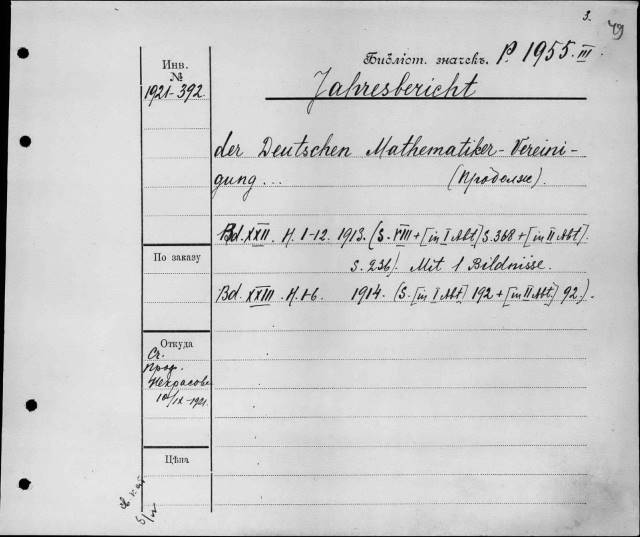 3.
49
Библіот. значекъ. P. 1955. III.
Инв.
№
1921-392.
Jahresbericht
der Deutschen Mathematiker-Vereini-
gung... (Продолж).
Bd. XXII. H. 1-12. 1913. (S. VIII + [in I Abt] S. 368 + [in II Abt].
S. 236). Mit 1 Bildnisse.
По заказу
Bd. XXIII. H. 1-6. 1914. (S. [in I Abt] 192 + [in II Abt.] 92).
Откуда
От.
Проф.
Некрасова
10/IX-1921.
Цѣна